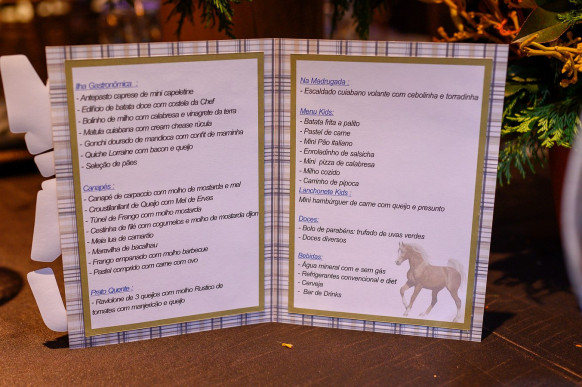 Ilha Gastronômica :
- Antepasto caprese de mini capeletine
- Edifício de batata doce com costela da Chef
- Bolinho de milho com calabresa e vinagrete da terra
- Matula cuiabana com cream chease rúcula
- Gonchi dourado de mandioca com confit de maminha
- Quiche Lorraine com bacon e queijo
- Seleção de pães
Canapés :
- Canapé de carpaccio com molho de mostarda e mel
- Croustillanlant de Queijo com Mel de Ervas
- Túnel de Frango com molho mostarda
- Cestinha de filé com cogumelos e molho de mostarda dijon
- Meia lua de camarão
- Maravilha de bacalhau
- Frango empanado com molho barbecue
- Pastel comprido com carne com ovo
Prato Quente :
- Raviolone de 3 queijos com molho Rustico de
tomates com manjericão e queijo
Na Madrugada :
- Escaldado cuiabano volante com cebolinha e torradinha
Menu Kids:
- Batata frita a palito
- Pastel de carne
- Mini Pão italiano
- Enroladinho de salsicha
- Mini pizza de calabresa
- Milho cozido
- Carrinho de pipoca
Lanchonete Kids :
Mini hambúrguer de carne com queijo e presunto
Doces:
- Bolo de parabéns: trufado de uvas verdes
- Doces diversos
Bebidas:
- Água mineral com e sem gás
- Refrigerantes convencional e diet
- Cerveja
- Bar de Drinks